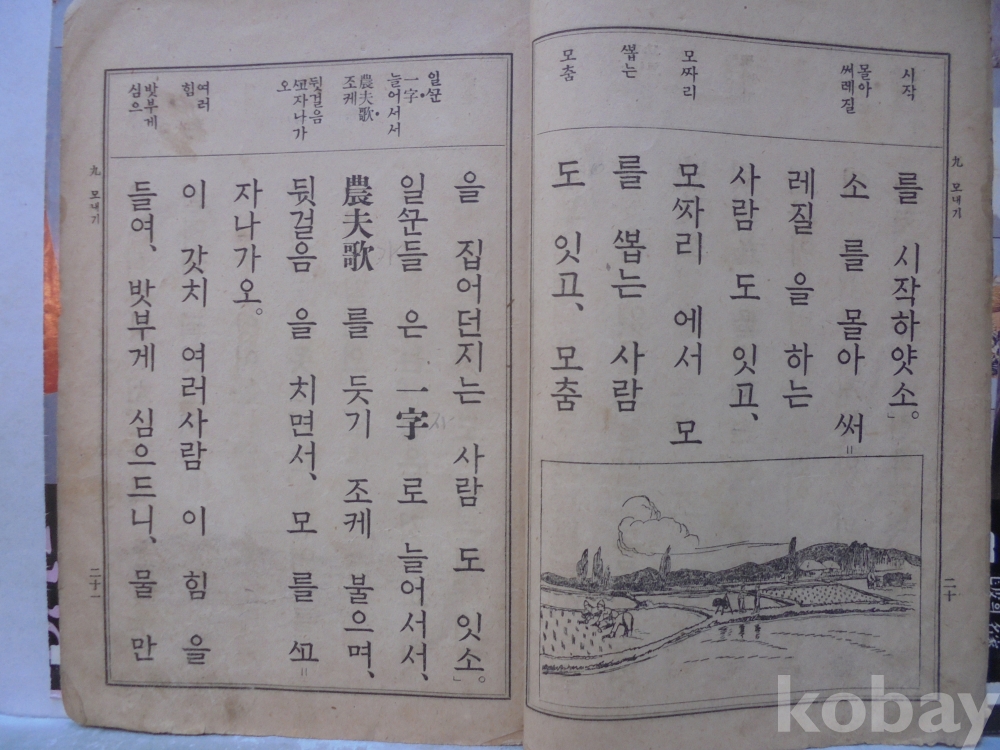 시작
몰아
써레질
모ᄶᅡ리
ᄲᅩᆸ는
모춤
를 시작하얏소。」
소를 몰아 써=
레질을 하는
사람도 잇고、
모ᄶᅡ리에서 모
를 ᄲᅩᆸ는 사람
도 잇고、 모춤
九 모내기
二十
일ᄭᅮᆫ
一字
늘어서서
農夫歌
조케
뒷걸음
ᄭᅩ자나가
오
여러
힘
밧부게
심으
을 집어던지는 사람도 잇소。」
일ᄭᅮᆫ들은 一字로 늘어서서、
農夫歌를 듯기 조케 불으며、
뒷걸음을 치면서、 모를 ᄭᅩ=
자나가오。
이 갓치 여러사람이 힘을
들여、 밧부게 심으드니、 물만
九 모내기
二十一
kobay